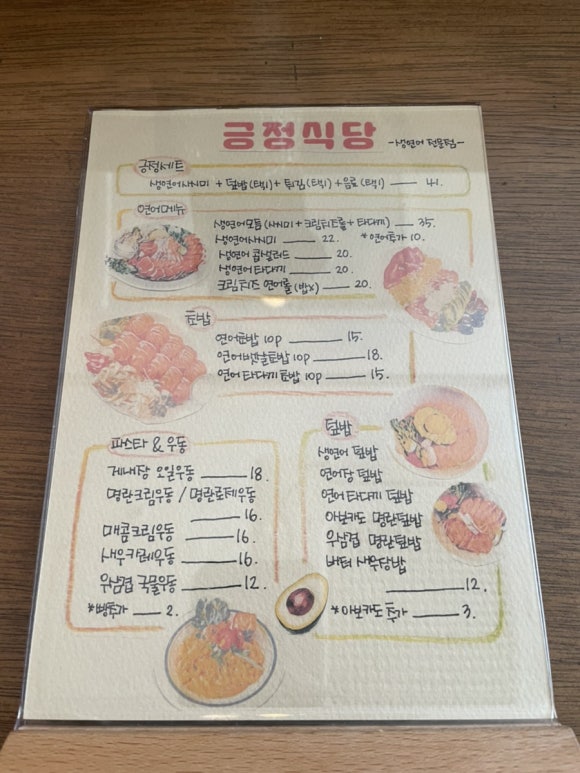 긍정식당 -생연어 전문점-
긍정세트
생연어사시미 + 덮밥(택1) + 튀김(택1) + 음료(택1) 41.
연어메뉴
생연어모듬(사시미+크림치즈롤+타다끼) 35.
생연어사시미 22. *연어추가 10.
생연어 콥샐러드 20.
생연어 타다끼 20.
크림치즈 연어롤(밥x) 20.
초밥
연어초밥 10p 15.
연어뱃살초밥 10p 18.
연어타다끼초밥 10p 15.
파스타 & 우동
게내장 오일우동 18.
명란크림우동 / 명란로제우동
16.
매콤크림우동 16.
새우카레우동 16.
우삼겹 국물우동 12.
*빵추가 2.
덮밥
생연어 덮밥
연어장 덮밥
연어타다끼 덮밥
아보카도 명란덮밥
우삼겹 명란덮밥
버터 새우장밥
12.
*아보카도 추가 3.